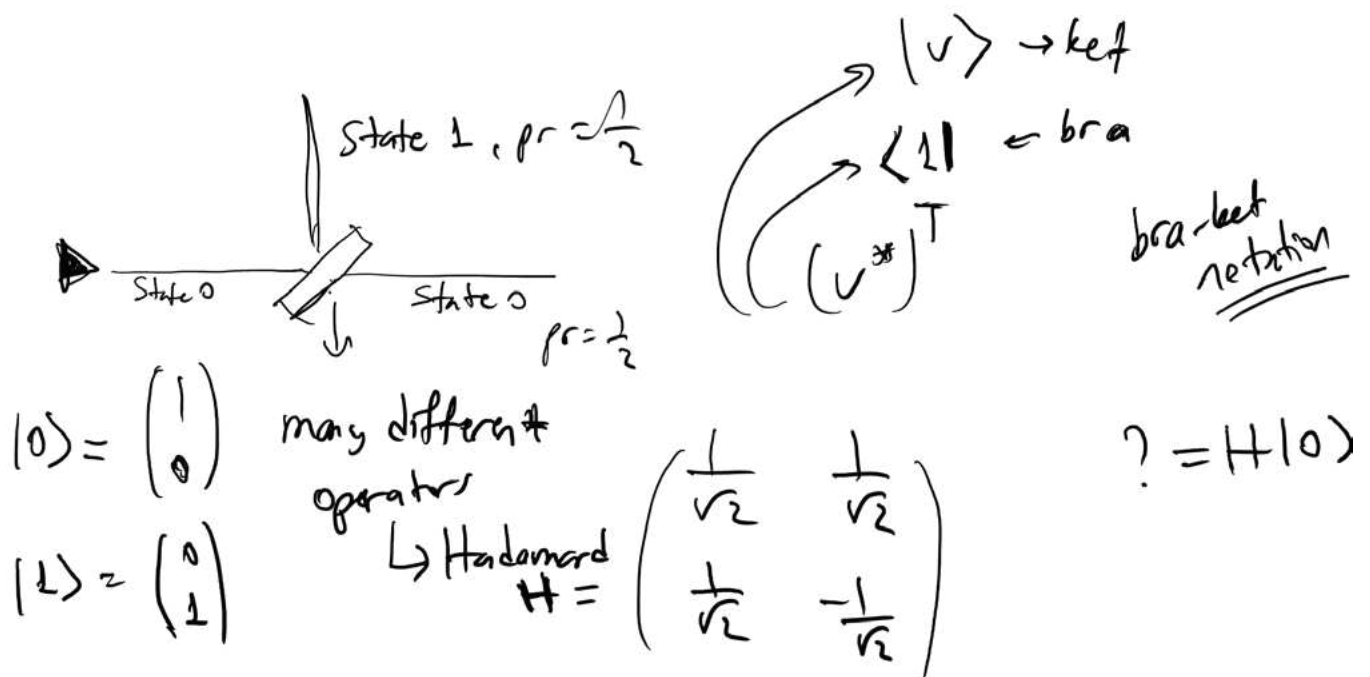 |v> → ket
State 1, pr = 1/2
<1| ← bra
(v*)^T
bra-ket
notation
State 0
State 0
pr = 1/2
|0> = (1 0)
many different
operators
↳ Hadamard
H = (1/√2 1/√2
1/√2 -1/√2)
? = H|0>
|1> = (0 1)